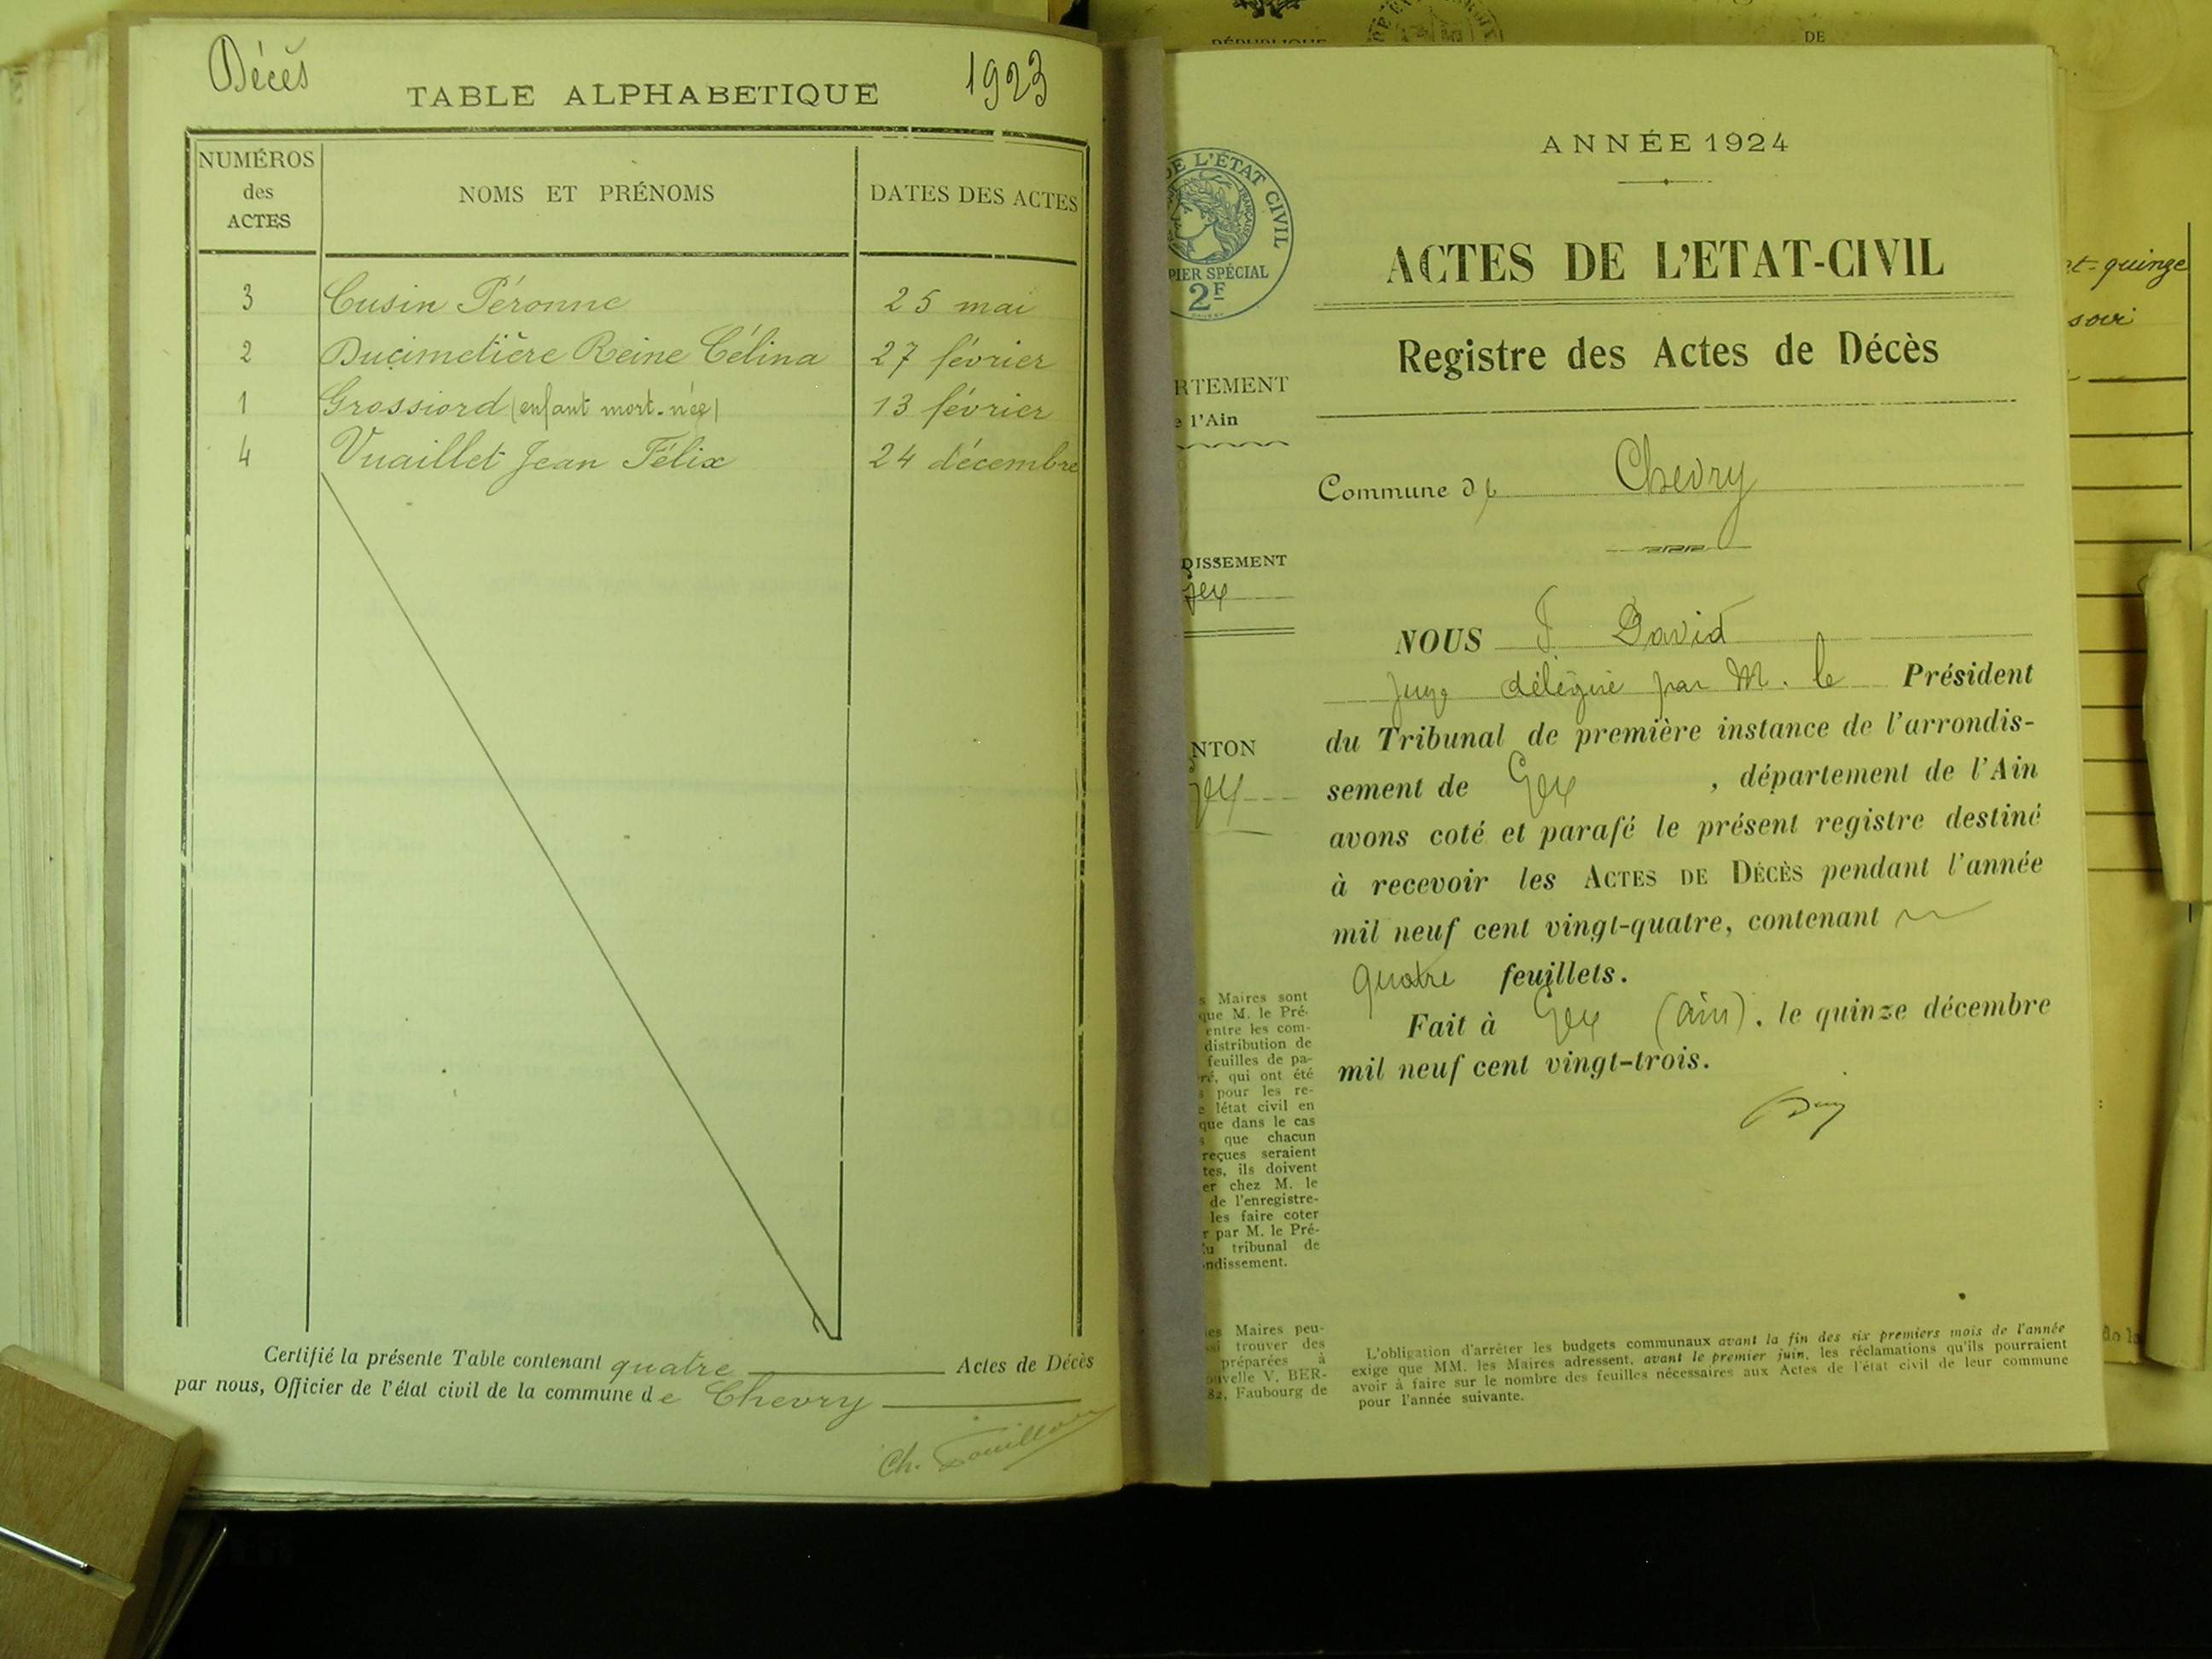 Décès
TABLE ALPHABETIQUE
1923
NUMÉROS
des
ACTES
NOMS ET PRÉNOMS
DATES DES ACTES
3 Cusin Péronne 25 mai
2 Ducimetière Reine Célina 27 février
1 Grossiord (enfant mort-née) 13 février
4 Vuaillet Jean Félix 24 décembre
Certifié la présente Table contenant quatre Actes de Décès
par nous, Officier de l'état civil de la commune de Chevry
RÉPUBLIQUE
DE
ANNÉE 1924
DE L'ÉTAT CIVIL
PIER SPÉCIAL
2F
ACTES DE L'ETAT-CIVIL
Registre des Actes de Décès
RTEMENT
e l'Ain
Commune de Chevry
DISSEMENT
Gex
NOUS F. David
Juge délégué par M. le Président
du Tribunal de première instance de l'arrondis-
NTON
Gex
sement de Gex, département de l'Ain
avons coté et parafé le présent registre destiné
à recevoir les ACTES DE DÉCÈS pendant l'année
mil neuf cent vingt-quatre, contenant
quatre feuillets.
Fait à Gex (Ain), le quinze décembre
mil neuf cent vingt-trois.
s Maires sont
que M. le Pré-
entre les com-
distribution de
feuilles de pa-
ré, qui ont été
s pour les re-
e létat civil en
que dans le cas
s que chacun
reçues seraient
tes, ils doivent
er chez M. le
de l'enregistre-
les faire coter
r par M. le Pré-
u tribunal de
ndissement.
es Maires peu-
si trouver des
préparées à
ouvelle V. BER-
82, Faubourg de
L'obligation d'arrêter les budgets communaux avant la fin des six premiers mois de l'année
exige que MM. les Maires adressent, avant le premier juin, les réclamations qu'ils pourraient
avoir à faire sur le nombre des feuilles nécessaires aux Actes de l'état civil de leur commune
pour l'année suivante.
et-quinze
soir